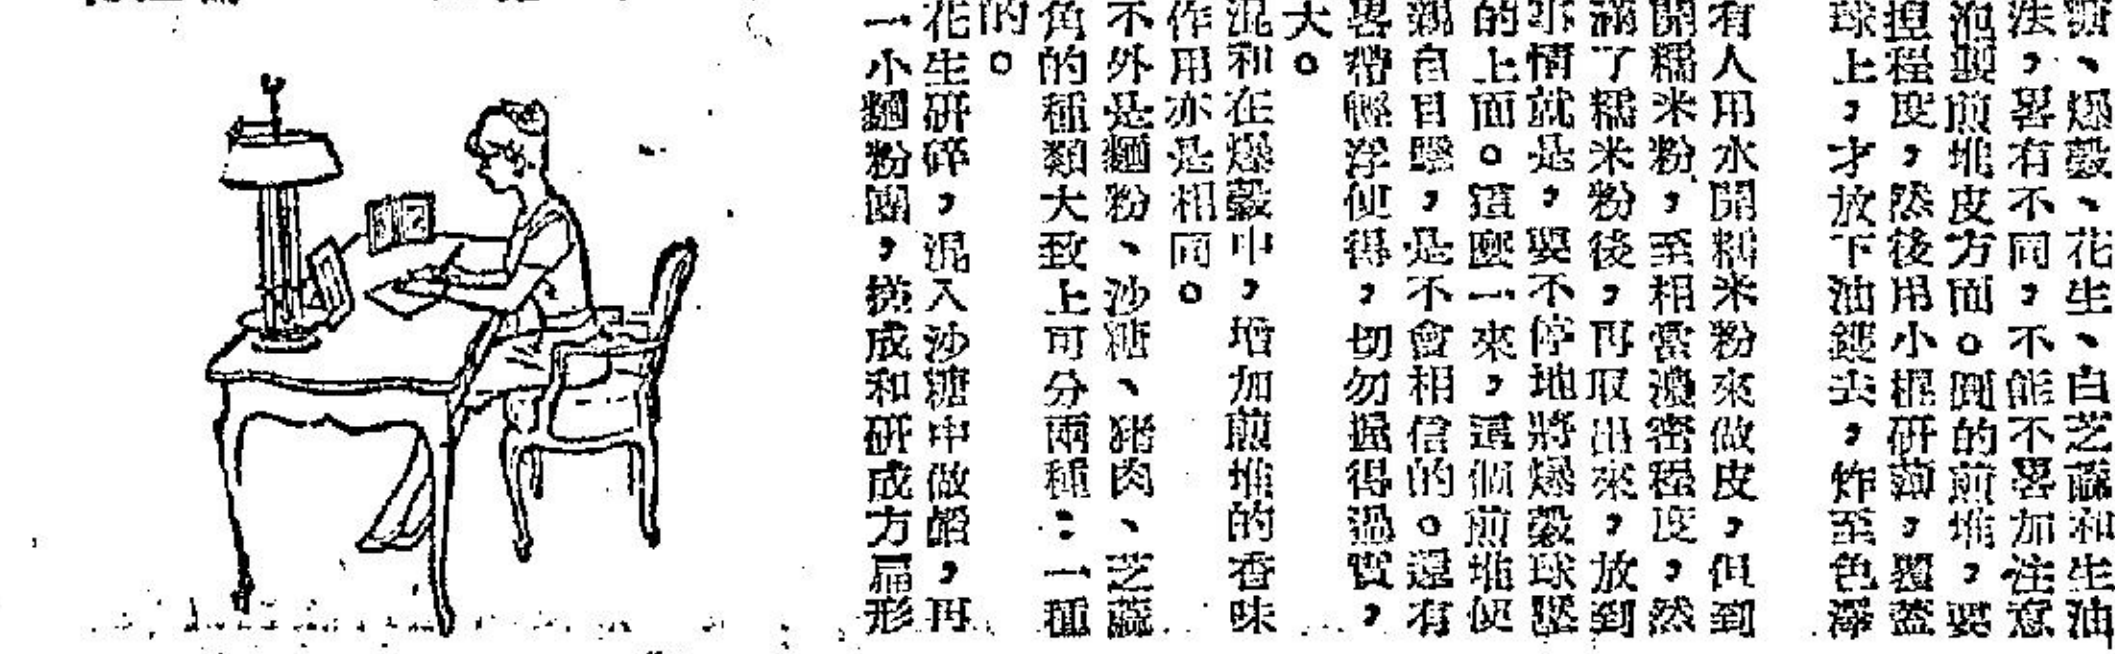 糖、爆穀、花生、白芝蔴和生油
法，畧有不同，不能不畧加注意
泡製煎堆皮方面。圓的煎堆，要
捏程度，然後用小棍研薄，覆蓋
球上，才放下油鑊去，炸至色澤
有人用水開糯米粉來做皮，但到
開糯米粉，至相當濃密程度，然
滿了糯米粉後，再取出來，放到
事情就是，要不停地將爆穀球壓
的上面。這麼一來，這個煎堆便
親自目擊，是不會相信的。還有
畧帶輕浮便得，切勿搵得過實，
大。
混和在爆穀中，增加煎堆的香味
作用亦是相同。
不外是麵粉、沙糖、豬肉、芝蔴
角的種類大致上可分兩種：一種
的。
花生研碎，混入沙糖中做餡，再
一小麵粉團，搓成和研成方扁形